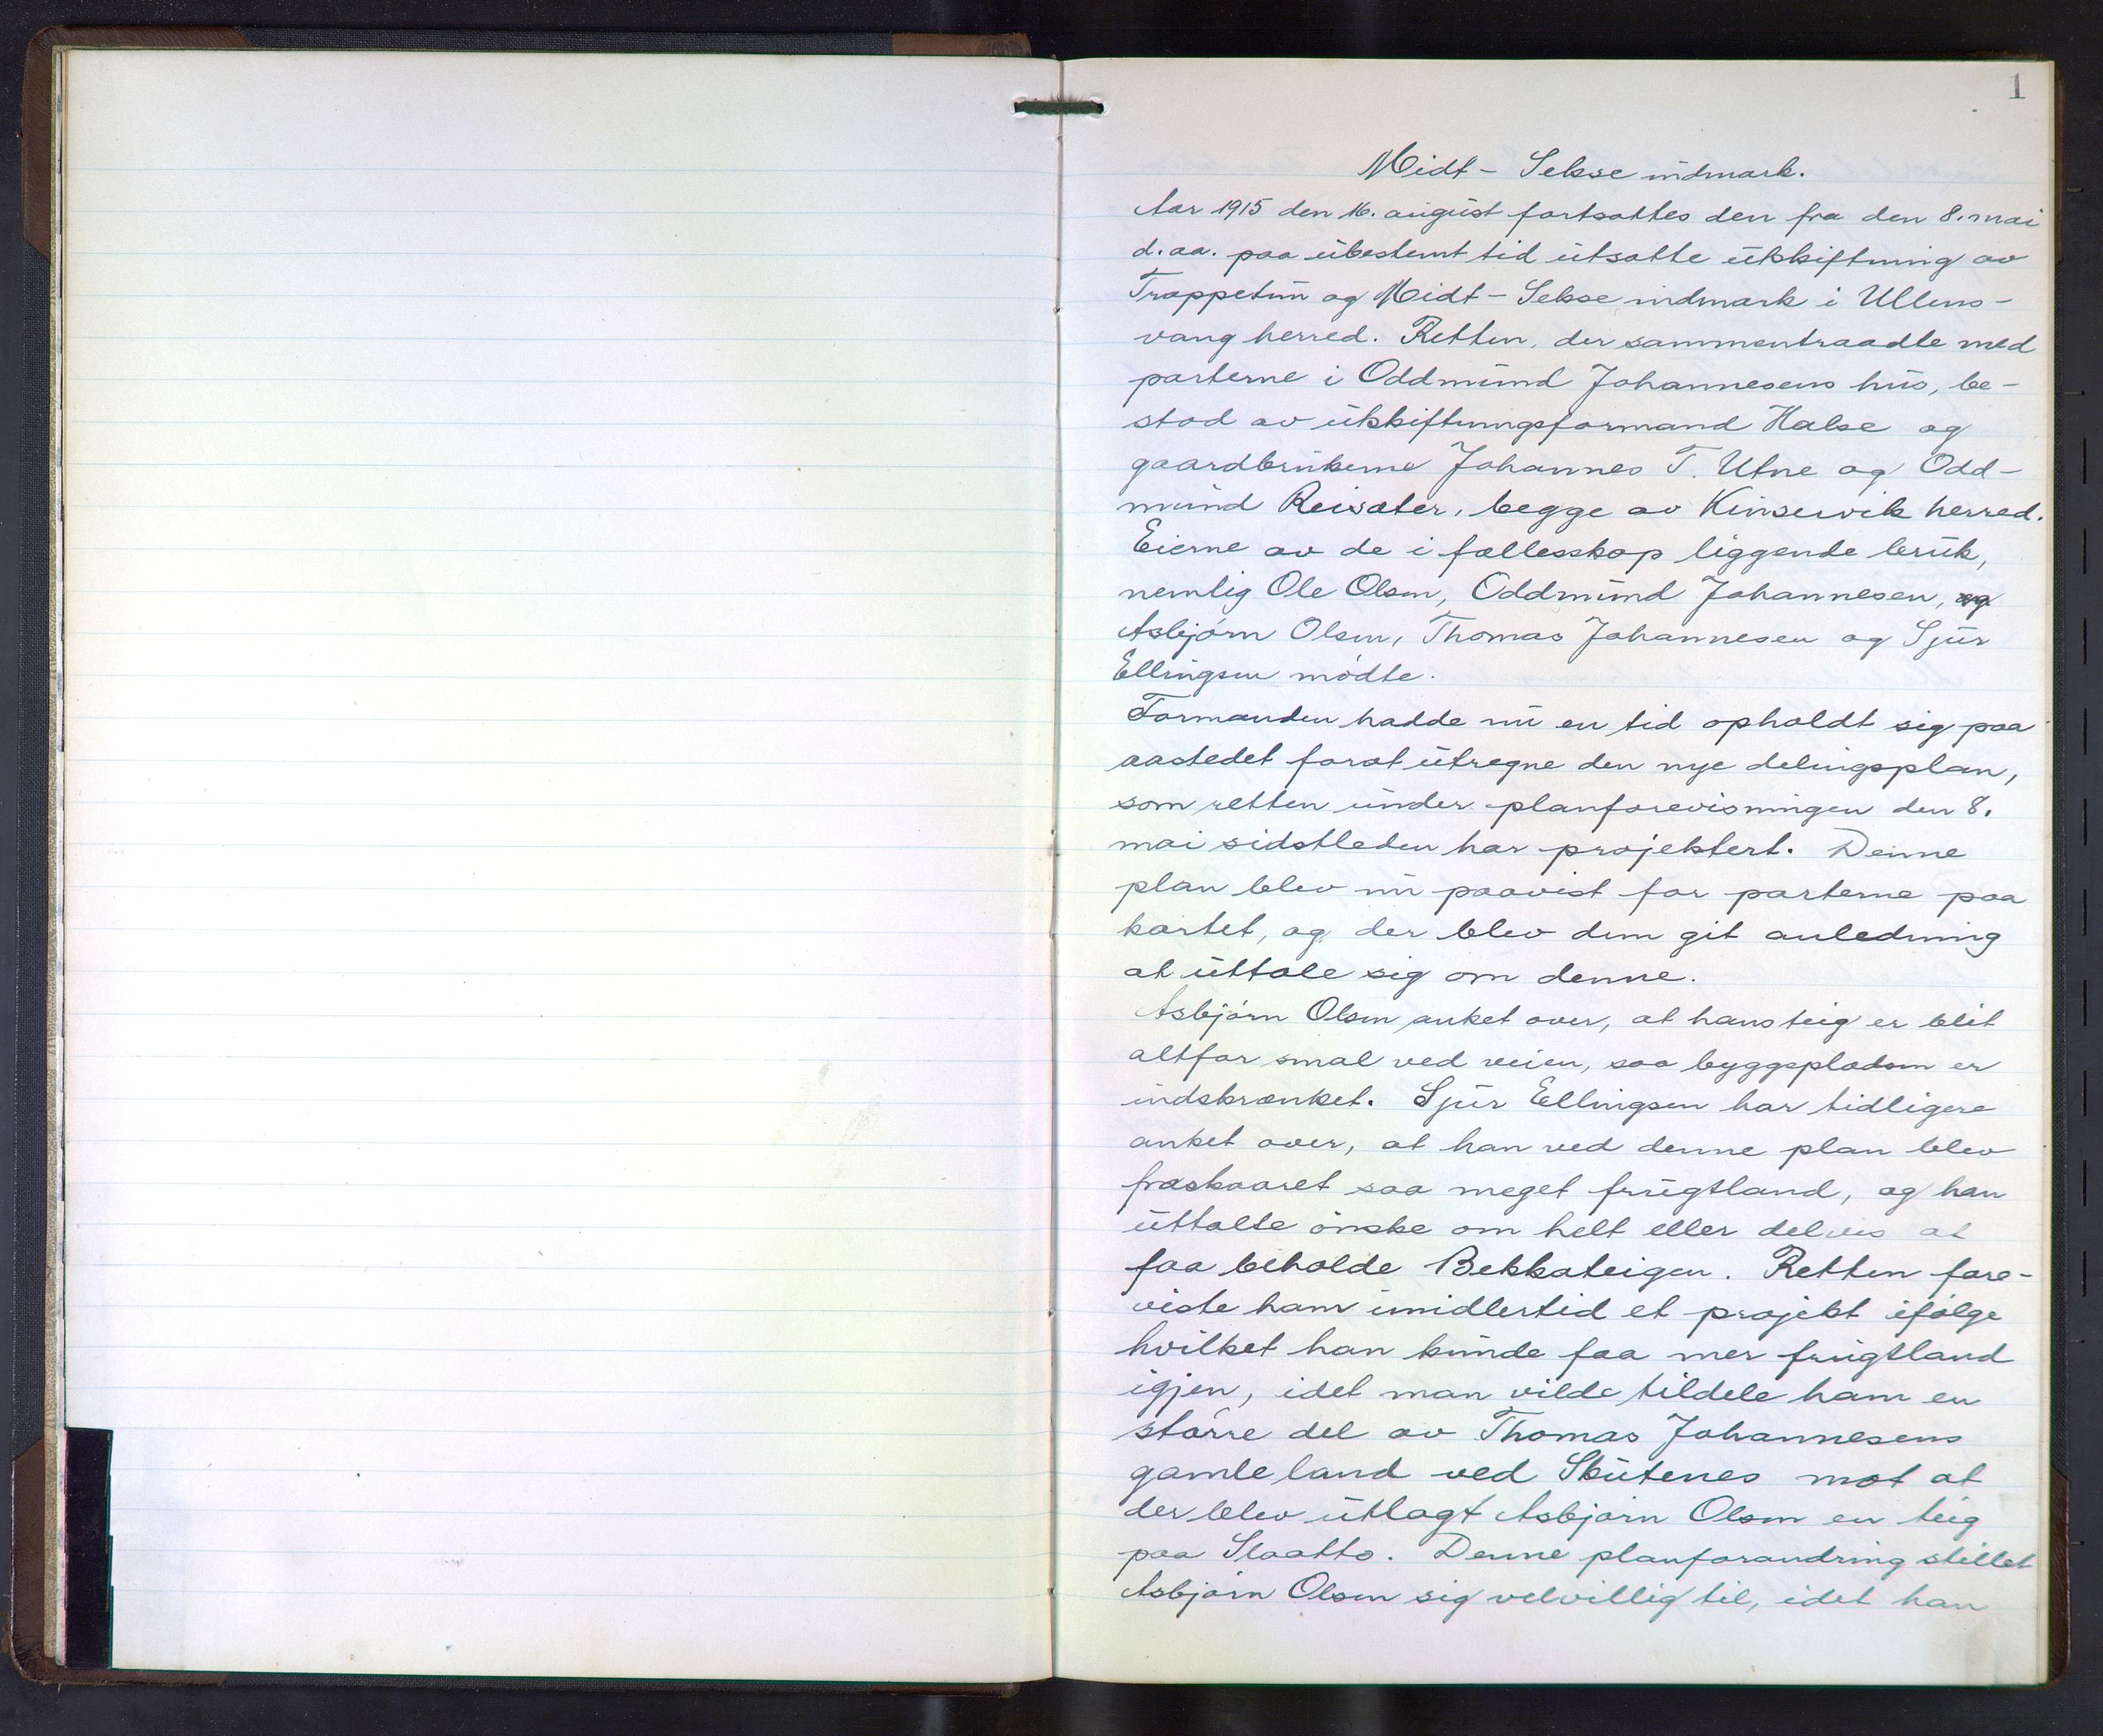 1
Midt - Sekse indmark.
Aar 1915 den 16. august fortsattes den fra den 8. mai
d. aa. paa ubestemt tid utsatte utskiftning av
Trappetun og Midt - Sekse indmark i Ullens-
vang herred. Retten, der sammentraadte med
parterne i Oddmund Johannesens hus, be-
stod av utskiftningsformand Halse og
gaardbrukerne Johannes T. Utne og Odd-
mund Reisæter, begge av Kinservik herred.
Eierne av de i fællesskap liggende bruk,
nemlig Ole Olsen, Oddmund Johannesen, og
Asbjørn Olsen, Thomas Johannesen og Sjur
Ellingsen mødte.
Formanden hadde nu en tid opholdt sig paa
aastedet forat utregne den nye delingsplan,
som retten under planforevisningen den 8.
mai sidstleden har projektert. Denne
plan blev nu paavist for parterne paa
kartet, og der blev dem git anledning
at uttale sig om denne.
Asbjørn Olsen anket over, at hans teig er blit
altfor smal ved veien, saa byggepladsen er
indskrænket. Sjur Ellingsen har tidligere
anket over, at han ved denne plan blev
fraskaaret saa meget frugtland, og han
uttalte ønske om helt eller delvis at
faa beholde Bekkateigen. Retten fore-
viste ham imidlertid et projekt ifølge
hvilket han kunde faa mer frugtland
igjen, idet man vilde tildele ham en
større del av Thomas Johannesens
gamle land ved Skutenes mot at
der blev utlagt Asbjørn Olsen en teig
paa Slaatto. Denne planforandring stillet
Asbjørn Olsen sig velvillig til, idet han